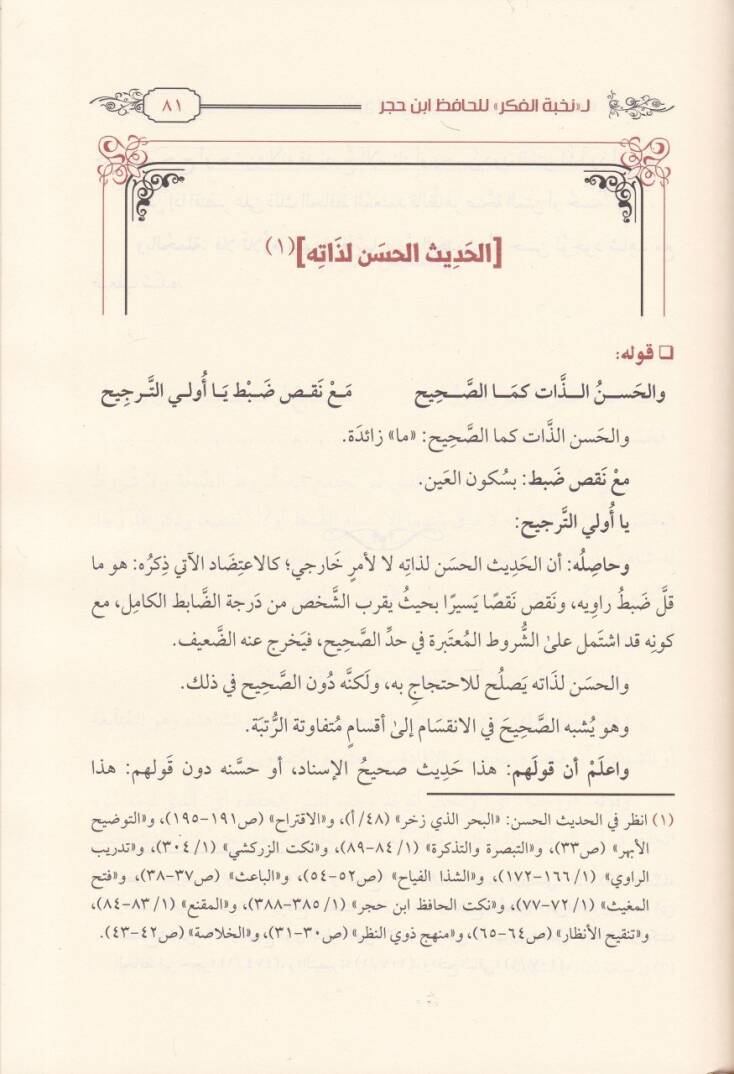 لـ«نخبة الفكر» للحافظ ابن حجر
٨١
[الحَدِيث الحسَن لذَاتِه] (١)
❑ قوله:
والحَســنُ الــذَّات كمَــا الصَّــحِيح مَـعْ نَقـص ضَـبْط يَـا أُولـي التَّـرجِيح
والحَسن الذَّات كما الصَّحيح: «ما» زائدَة.
معْ نَقص ضَبط: بسُكون العَين.
يا أُولي التَّرجيح:
وحاصِلُه: أن الحَديث الحسَن لذاتِه لا لأمرٍ خَارجي؛ كالاعتِضَاد الآتي ذِكرُه: هو ما
قلَّ ضَبطُ راوِيه، ونَقص نَقصًا يَسيرًا بحيثُ يقرب الشَّخص من دَرجة الضَّابط الكامِل، مع
كونِه قد اشتَمل علىٰ الشُّروط المُعتَبرة في حدِّ الصَّحِيح، فيَخرج عنه الضَّعيف.
والحسَن لذاته يَصلُح للاحتجاجِ به، ولَكنَّه دُون الصَّحيح في ذلك.
وهو يُشبه الصَّحيحَ في الانقسَام إلىٰ أقسامٍ مُتفاوتة الرُّتبَة.
واعلَمْ أن قولَهم: هذا حَدِيث صحيحُ الإسناد، أو حسَّنه دون قَولهم: هذا
(١) انظر في الحديث الحسن: «البحر الذي زخر» (٤٨/أ)، و«الاقتراح» (ص١٩١-١٩٥)، و«التوضيح
الأبهر» (ص٣٣)، و«التبصرة والتذكرة» (١/ ٨٤-٨٩)، و«نكت الزركشي» (١/ ٣٠٤)، و«تدريب
الراوي» (١/ ١٦٦-١٧٢)، و«الشذا الفياح» (ص٥٢-٥٤)، و«الباعث» (ص٣٧-٣٨)، و«فتح
المغيث» (١/ ٧٢-٧٧)، و«نكت الحافظ ابن حجر» (١/ ٣٨٥-٣٨٨)، و«المقنع» (١/ ٨٣-٨٤)،
و«تنقيح الأنظار» (ص٦٤-٦٥)، و«منهج ذوي النظر» (ص٣٠-٣١)، و«الخلاصة» (ص٤٢-٤٣).